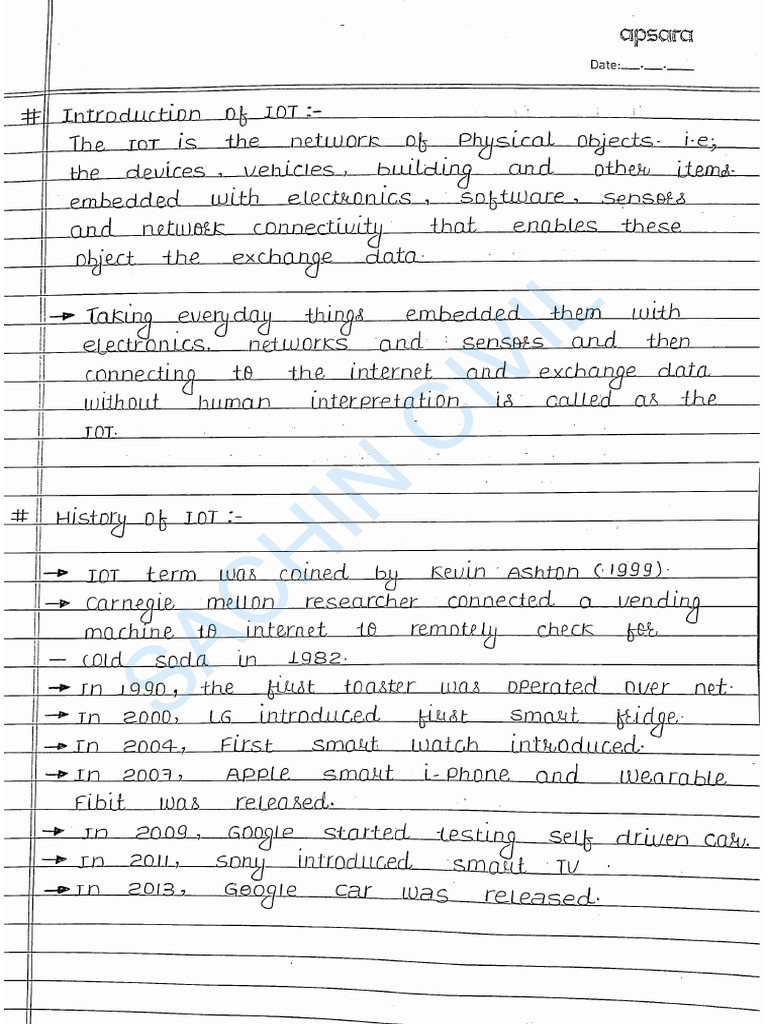 apsara
Date:__.__.__
# Introduction of IOT :-
The IOT is the network of Physical objects. i.e;
the devices, vehicles, building and other items.
embedded with electronics, software, sensors
and network connectivity that enables these
object the exchange data.
→ Taking everyday things embedded them with
electronics, networks and sensors and then
connecting to the internet and exchange data
without human interpretation is called as the
IOT.
SACHIN CIVIL
# History of IOT :-
→ IOT term was coined by Kevin Ashton (1999).
→ Carnegie mellon researcher connected a vending
machine to internet to remotely check for
– cold soda in 1982.
→ In 1990, the first toaster was operated over net.
→ In 2000, LG introduced first smart fridge.
→ In 2004, First smart watch introduced.
→ In 2007, APPLE smart i-Phone and wearable
Fibit was released.
→ In 2009, Google started testing self driven car.
→ In 2011, Sony introduced smart TV.
→ In 2013, Google car was released.